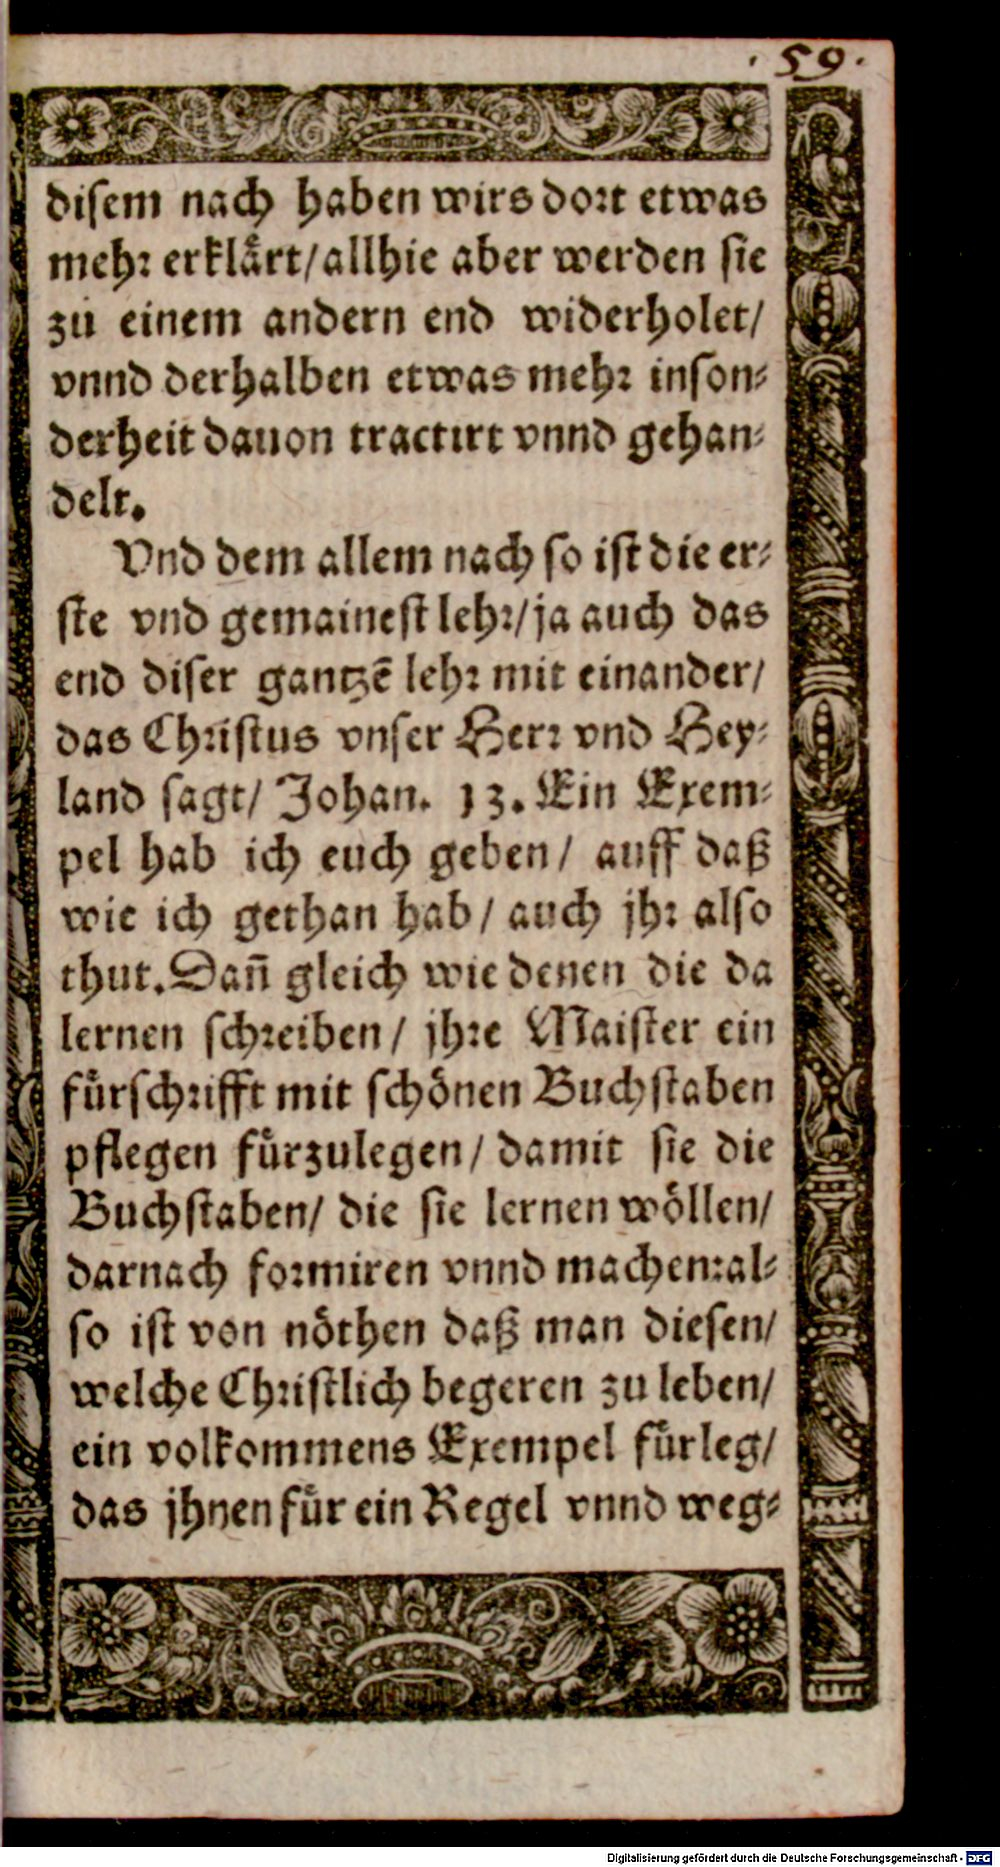 . 59 .
disem nach haben wirs dort etwas
mehr erklårt/allhie aber werden sie
zu einem andern end widerholet/
vnnd derhalben etwas mehr inson-
derheit dauon tractirt vnnd gehan-
delt.
Vnd dem allem nach so ist die er-
ste vnd gemainest lehr/ja auch das
end diser gantzē lehr mit einander/
das Christus vnser Herr vnd Hey-
land sagt/ Johan. 13. Ein Exem-
pel hab ich euch geben/ auff daß
wie ich gethan hab/ auch jhr also
thut. Dañ gleich wie denen die da
lernen schreiben/ jhre Maister ein
fürschrifft mit schönen Buchstaben
pflegen fürzulegen/ damit sie die
Buchstaben/ die sie lernen wöllen/
darnach formiren vnnd machen:al-
so ist von nöthen daß man diesen/
welche Christlich begeren zu leben/
ein volkommens Exempel fürleg/
das jhnen für ein Regel vnnd weg-
Digitalisierung gefördert durch die Deutsche Forschungsgemeinschaft - DFG